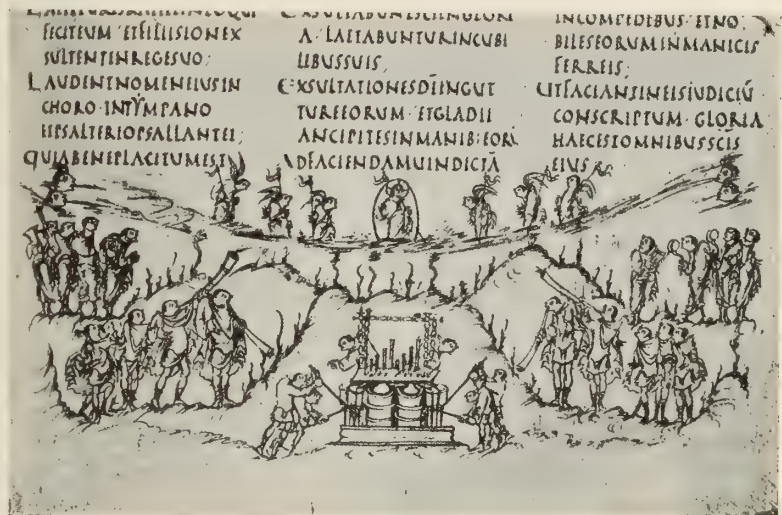 FECITEUM· ETFILIISIONEX
SULTENTINREGESUO;
LAUDENTNOMENEIUSIN
CHORO·INTYMPANO
ETPSALTERIOPSALLANTEI;
QUIABENEPLACITUMEST
EXSULTABUNTSCIINGLORI
A· LAETABUNTURINCUBI
LIBUSSUIS;
EXSULTATIONESDĪINGUT
TUREEORUM· ETGLADII
ANCIPITESINMANIB;EORŪ
ADFACIENDAMUINDICTĀ
INCOMPEDEBUS·ETNO
BILESEORUMINMANICIS
FERREIS;
UTFACIANTINEISIUDICIŪ
CONSCRIPTUM· GLORIA
HAECESTOMNIBUSSCĪS
EIUS